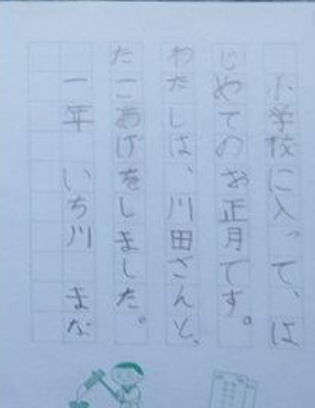 小学校に入って、は
じめてのお正月です。
わたしは、川田さんと、
たこあげをしました。
一年 いち川 まな